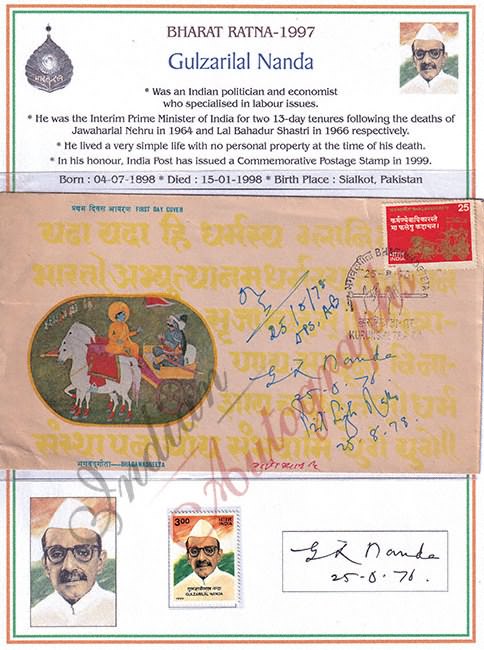 BHARAT RATNA-1997
Gulzarilal Nanda
* Was an Indian politician and economist
who specialised in labour issues.
* He was the Interim Prime Minister of India for two 13-day tenures following the deaths of
Jawaharlal Nehru in 1964 and Lal Bahadur Shastri in 1966 respectively.
* He lived a very simple life with no personal property at the time of his death.
* In his honour, India Post has issued a Commemorative Postage Stamp in 1999.
Born : 04-07-1898 * Died : 15-01-1998 * Birth Place : Sialkot, Pakistan
प्रथम दिवस आवरण FIRST DAY COVER
25
कर्मण्येवाधिकारस्ते
मा फलेषु कदाचन।
भारत INDIA
यदा यदा हि धर्मस्य ग्लानि
भारत
धर्म
युगे॥
25/8/78
G L Nanda
25-8-78
25.8.78
भगवद्गीता—BHAGAWADGEETA
Indian Autographs
3.00
भारत INDIA
गुलज़ारीलाल नन्दा
GULZARILAL NANDA
1999
G L Nanda
25-8-78.